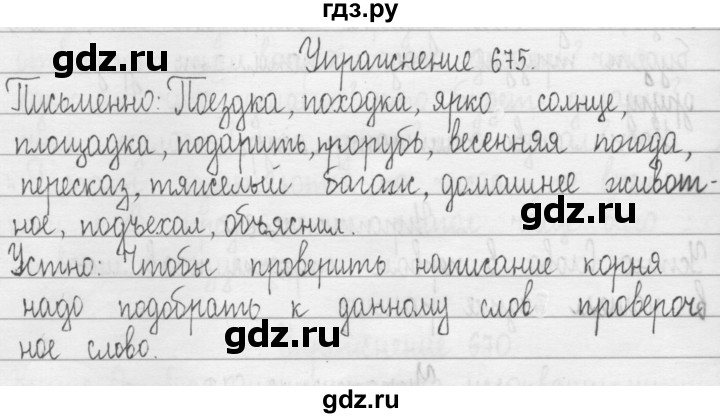 гдз.ру
gdz.ru gdz.ru
Упражнение 675.
Письменно: Поездка, походка, ярко солнце,
площадка, подарить, прорубь, весенняя погода,
пересказ, тяжелый багаж, домашнее живот-
ное, подъехал, объяснил.
gdz.ru gdz.ru
Устно: Чтобы проверить написание корня
надо подобрать к данному слов провероч
ное слово.
gdz.ru